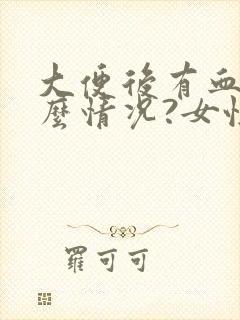 大便後有血
麼情況?女
羅可可